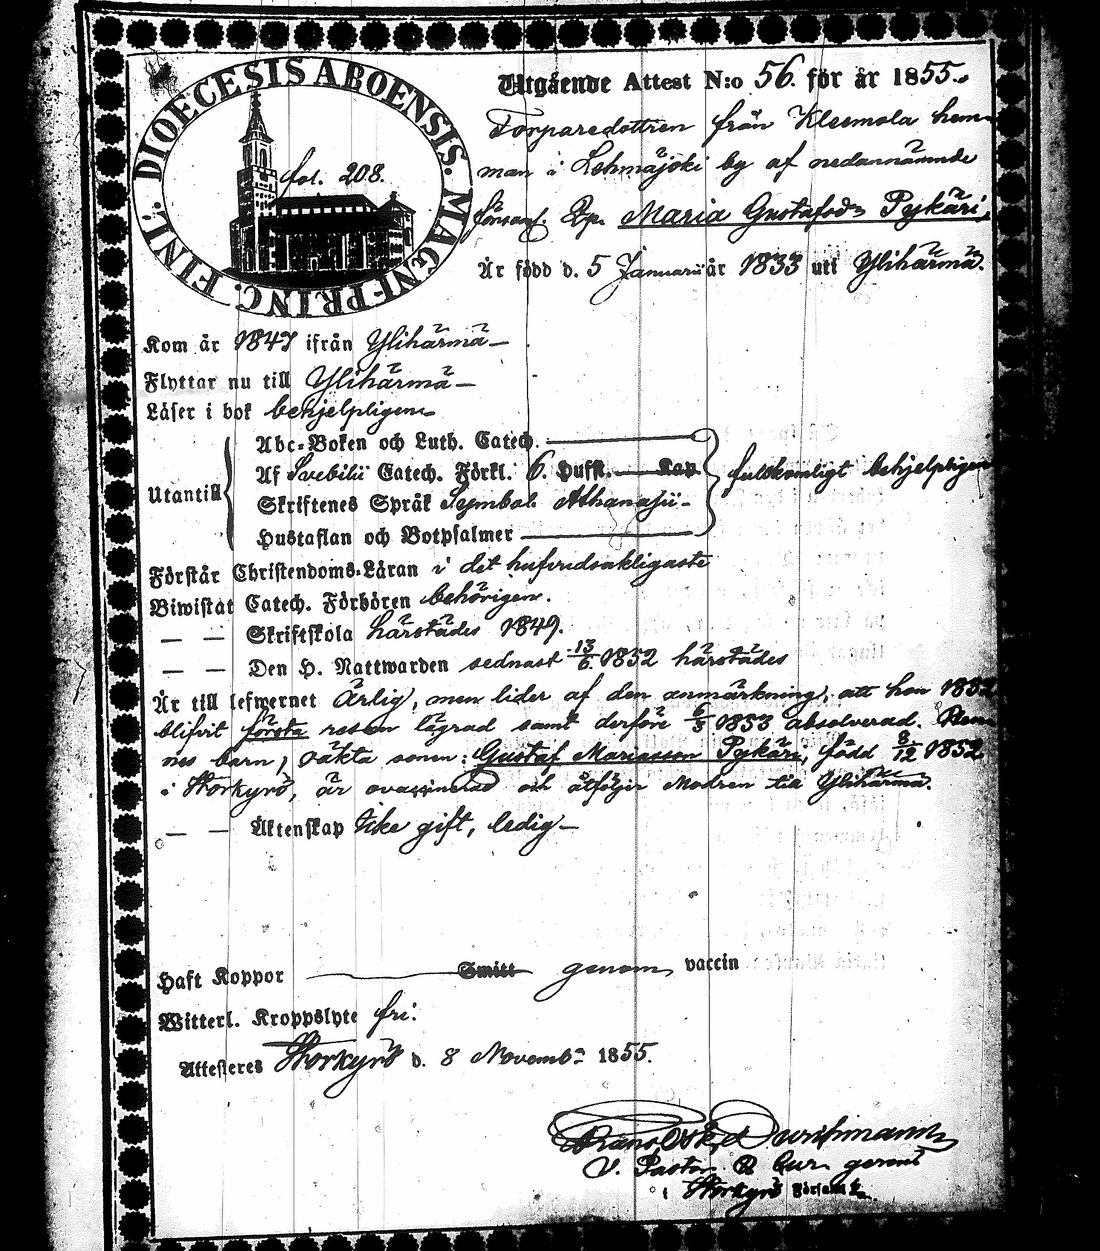 DIOECESIS ABOENSIS. MAGNI PRINC. FINL.
fol. 208.
Utgående Attest N:o 56. för år 1855.
Torparedottren från Kleemola hem-
man i Lehmäjoki by af nedannämnde
församl. Maria Gustafsdr Pykäri,
Är född d. 5 Januarii år 1833 uti Ylihärmä.
Kom år 1847 ifrån Ylihärmä
Flyttar nu till Ylihärmä
Läser i bok behjelpligen
Utantill
Abc-Boken och Luth. Catech.
Af Svebilii Catech. Förkl. 6. Hufst. Kap.
fullkomligt behjelpligen
Skriftenes Språk Symbol. Athanasii
Hustaflan och Botpsalmer
Förstår Christendoms-Läran i det hufvudsakligaste
Biwistat Catech. Förhören behörigen.
— — Skriftskola härstädes 1849.
— — Den H. Nattwarden sednast 13/6 1852 härstädes
Är till lefwernet Ärlig, men lider af den anmärkning, att hon 1852
blifvit första resan lägrad samt derföre 6/3 1853 absolverad. Hen-
nes barn, oäkta sonen: Gustaf Mariasson Pykäri, född 8/12 1852
i Storkyrö, är ovaccinerad och åtföljer Modren till Ylihärmä.
— — Äktenskap Icke gift, ledig
Haft Koppor Smitt genom vaccin
Witterl. Kroppslyte fri.
Attesteras Storkyrö d. 8 Novemb. 1855.
V. Pastor & Cur. gerent
i Storkyrö Församl.